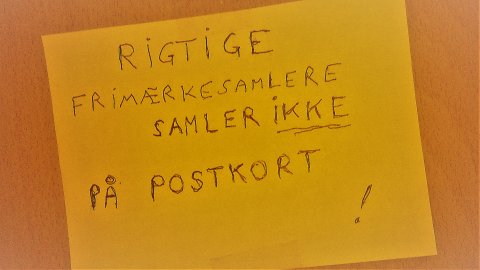 RIGTIGE
FRIMÆRKESAMLERE
SAMLER IKKE
PÅ POSTKORT
!